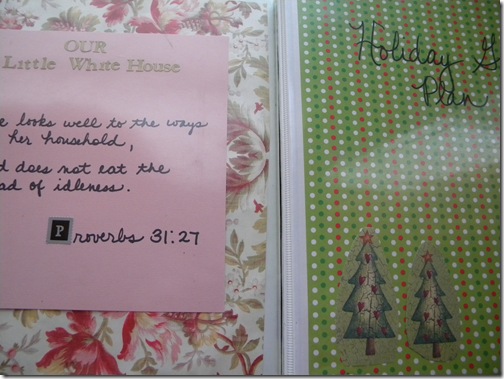 OUR
Little White House
e looks well to the ways
her household,
d does not eat the
ad of idleness.
Proverbs 31:27
Holiday G
Plan